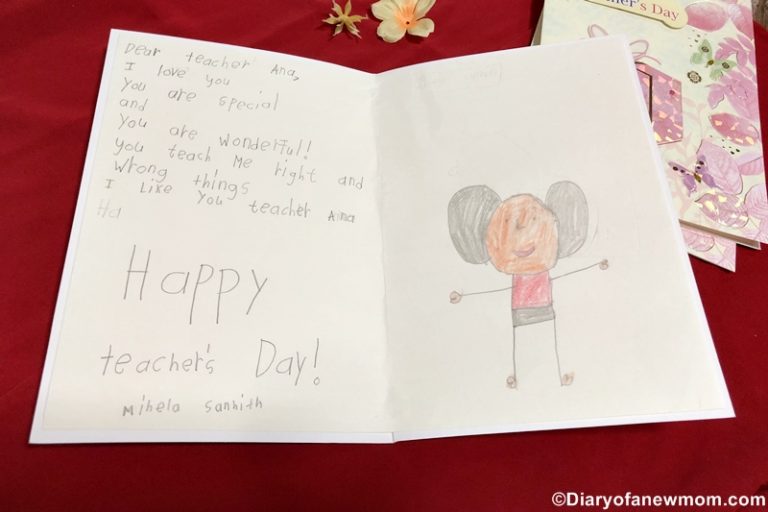 Dear teacher Ana,
I love you
You are special
and
You are wonderful!
You teach Me right and
wrong things
I Like You teacher Aina
Ha
Happy
teacher's Day!
Mihela Sanhith
her's Day
©Diaryofanewmom.com